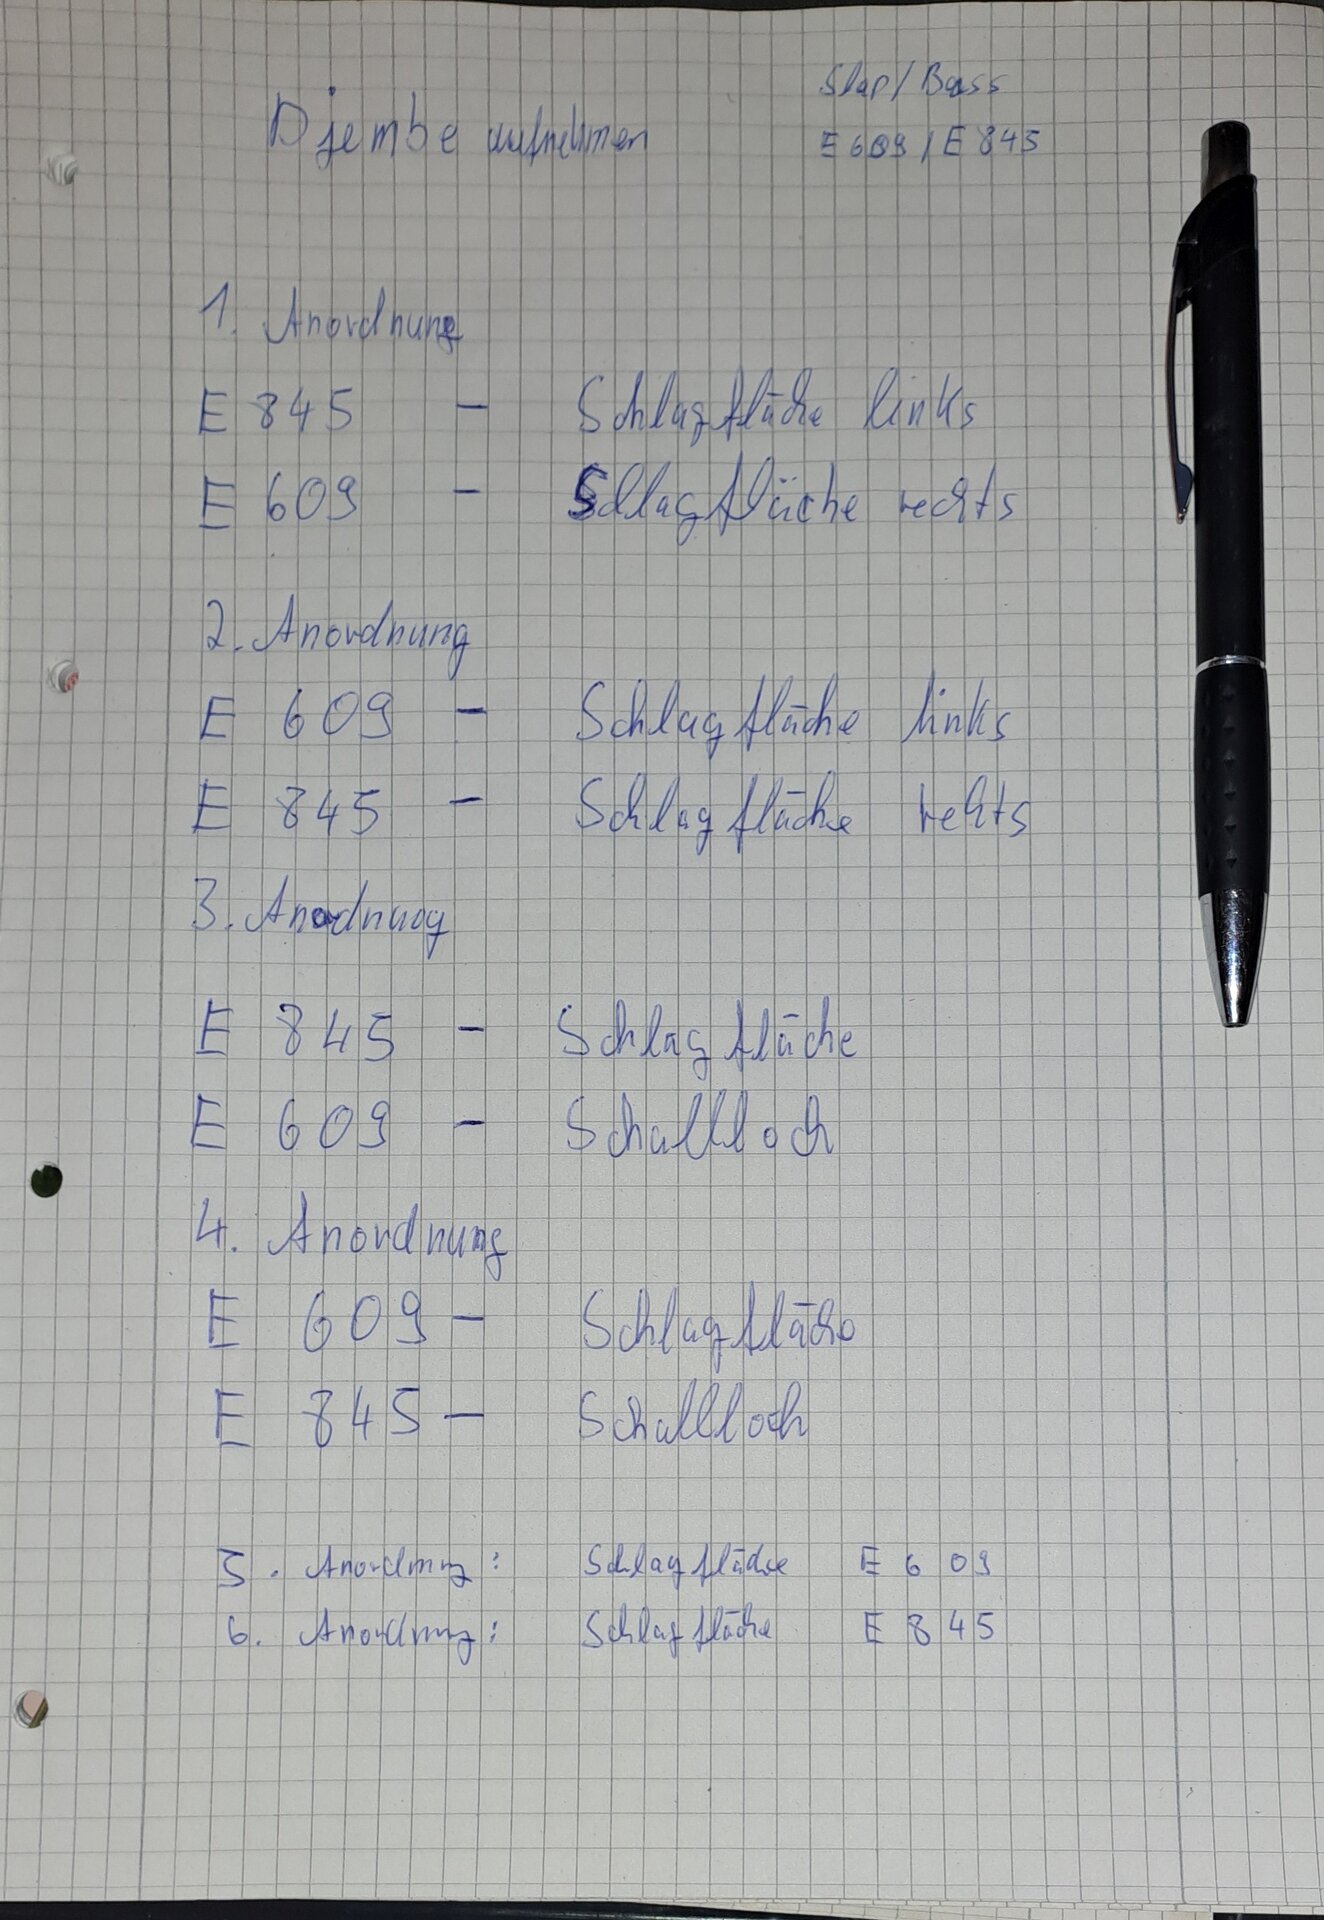 Slap / Bass
Djembe aufnehmen
E 609 / E 845
1. Anordnung
E 845 - Schlagfläche links
E 609 - Schlagfläche rechts
2. Anordnung
E 609 - Schlagfläche links
E 845 - Schlagfläche rechts
3. Anordnung
E 845 - Schlagfläche
E 609 - Schallloch
4. Anordnung
E 609 - Schlagfläche
E 845 - Schallloch
5. Anordnung: Schlagfläche E 609
6. Anordnung: Schlagfläche E 845